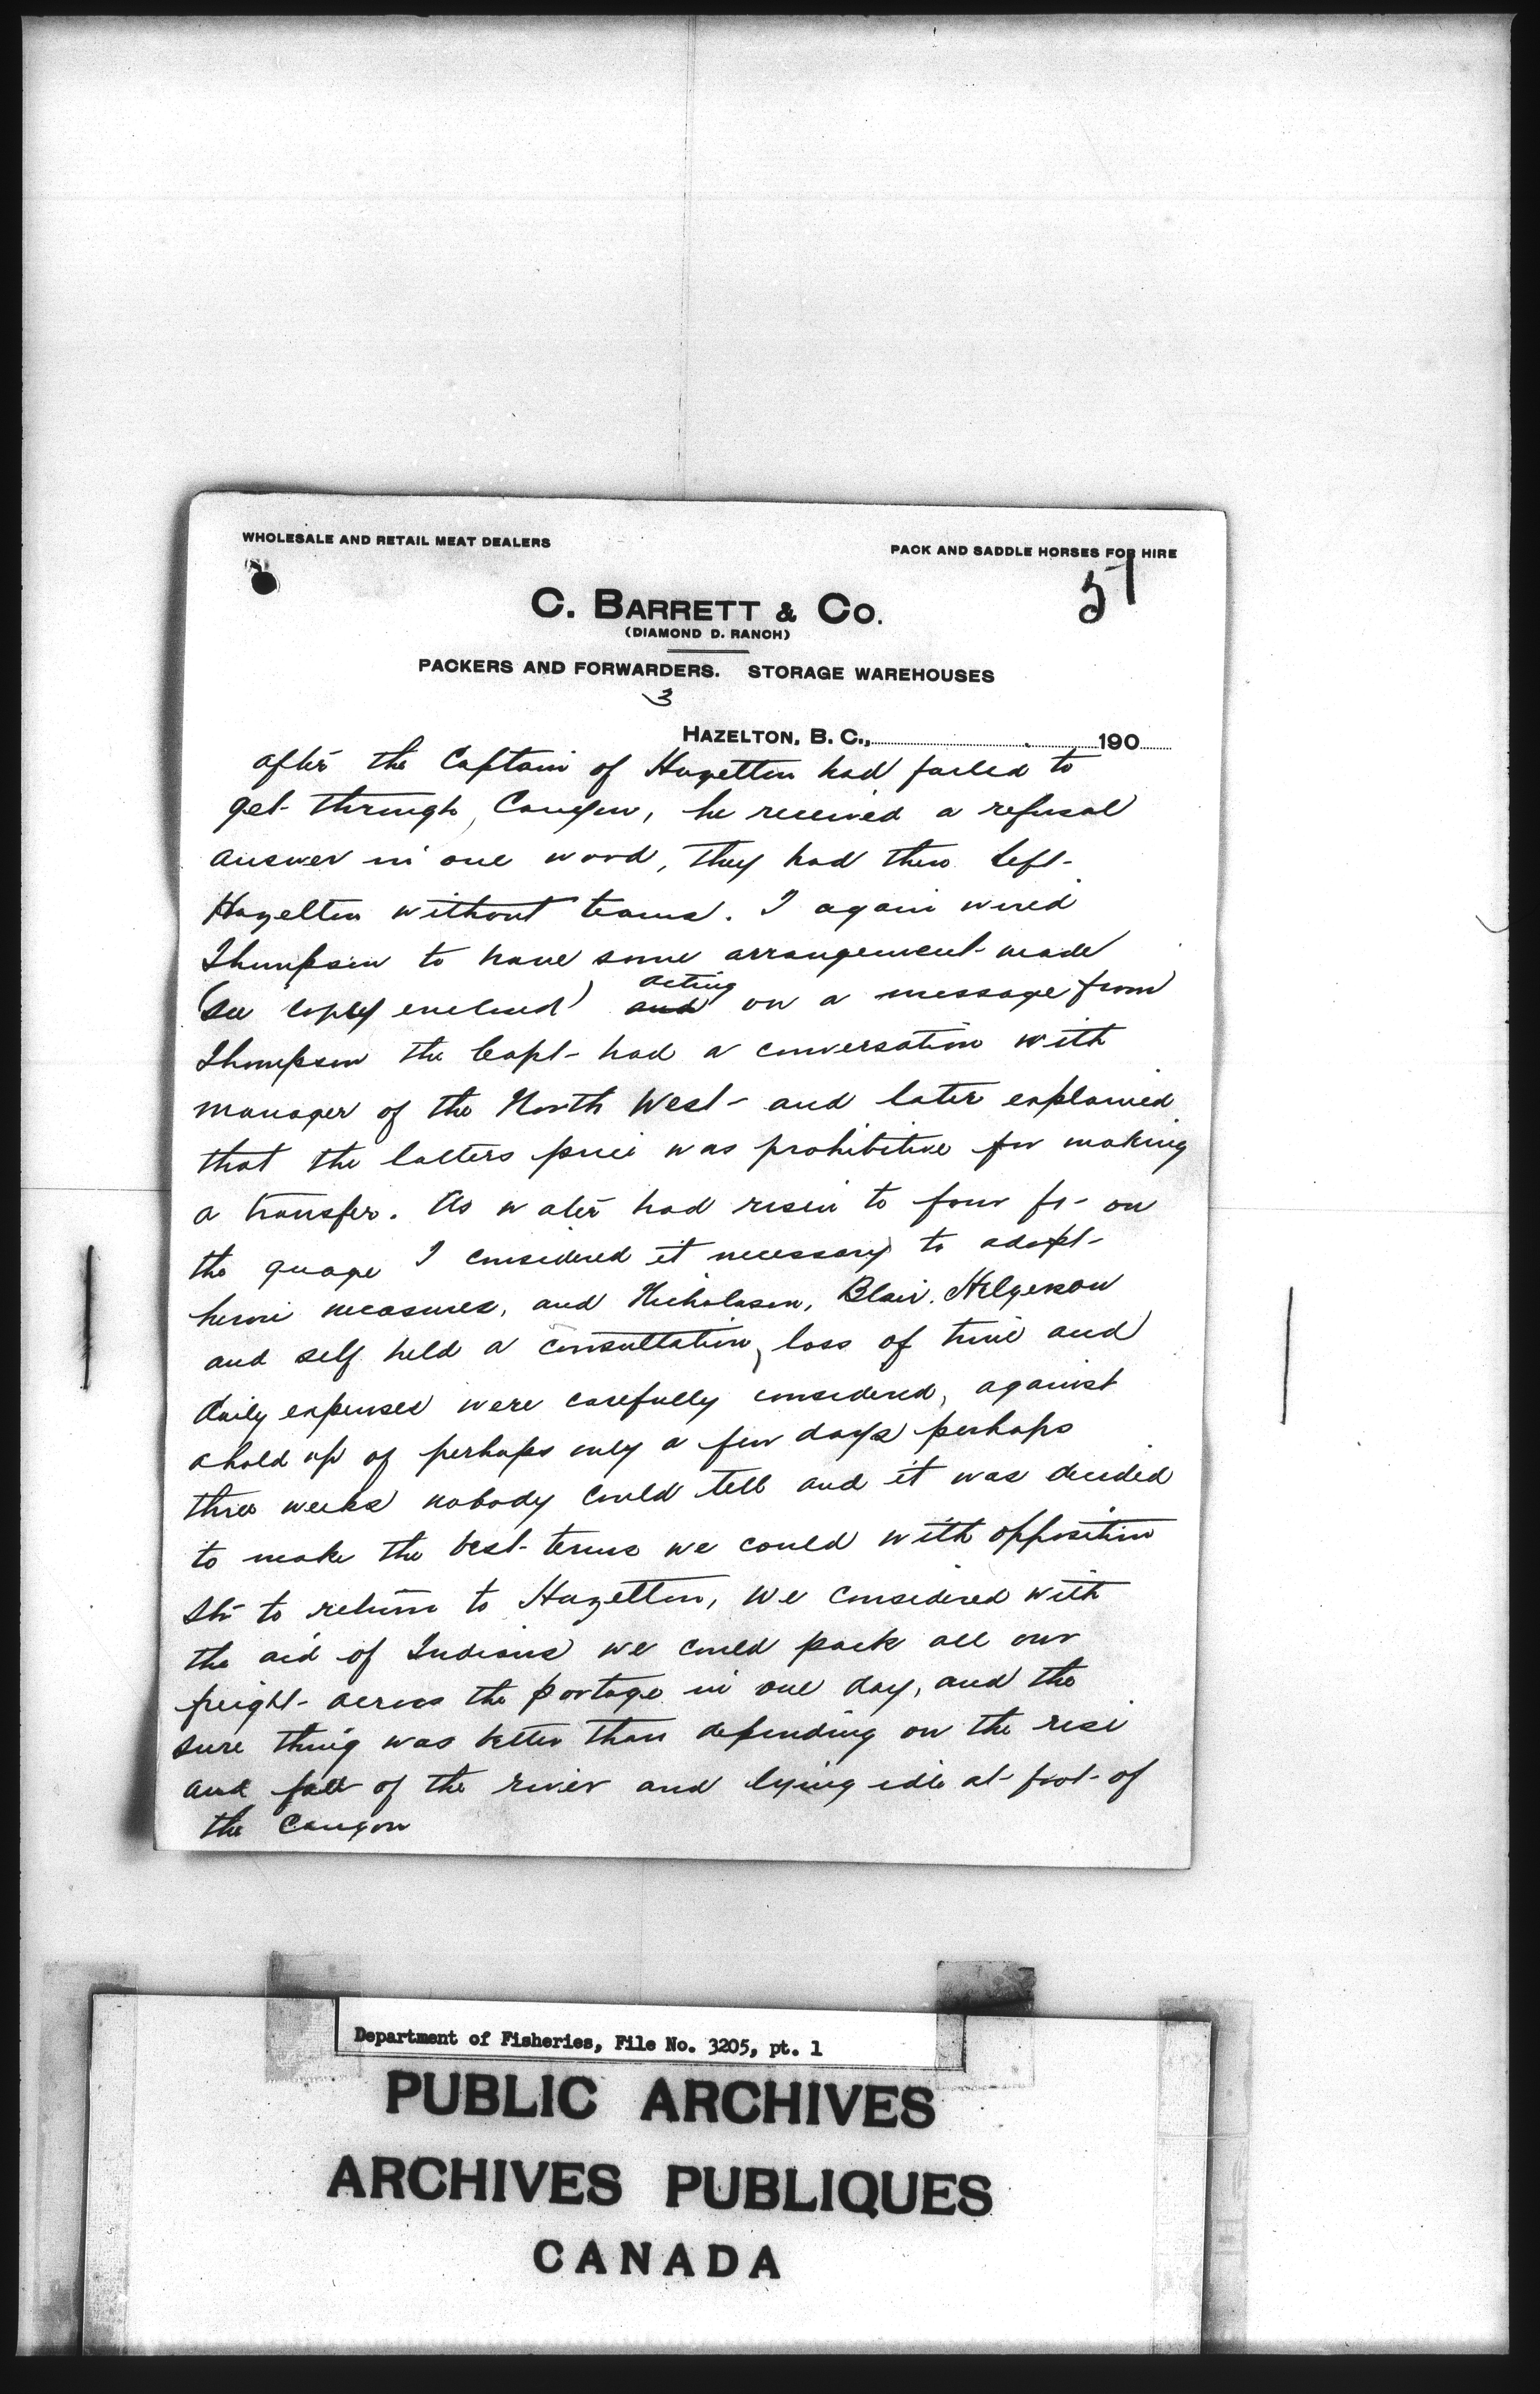 WHOLESALE AND RETAIL MEAT DEALERS
PACK AND SADDLE HORSES FOR HIRE
57
C. BARRETT & CO.
(DIAMOND D. RANCH)
PACKERS AND FORWARDERS. STORAGE WAREHOUSES
3
HAZELTON, B. C., 190
after the Captain of Hazelton had failed to
get through Canyon, he received a refusal
answer in one word, they had then left
Hazelton without teams. I again wired
Thompson to have some arrangement made
(see copy enclosed) and acting on a message from
Thompson the Capt had a conversation with
manager of the North West and later explained
that the latters price was prohibitive for making
a transfer. As water had risen to four ft on
the guage I considered it necessary to adopt
heroic measures, and Nicholson, Blair, Helgerson
and self held a consultation, loss of time and
daily expenses were carefully considered, against
a hold up of perhaps only a few days perhaps
three weeks nobody could tell and it was decided
to make the best terms we could with opposition
Str to return to Hazelton, we considered with
the aid of Indians we could pack all our
freight across the portage in one day, and the
sure thing was better than depending on the rise
and fall of the river and lying idle at foot of
the Canyon
Department of Fisheries, File No. 3205, pt. 1
PUBLIC ARCHIVES
ARCHIVES PUBLIQUES
CANADA